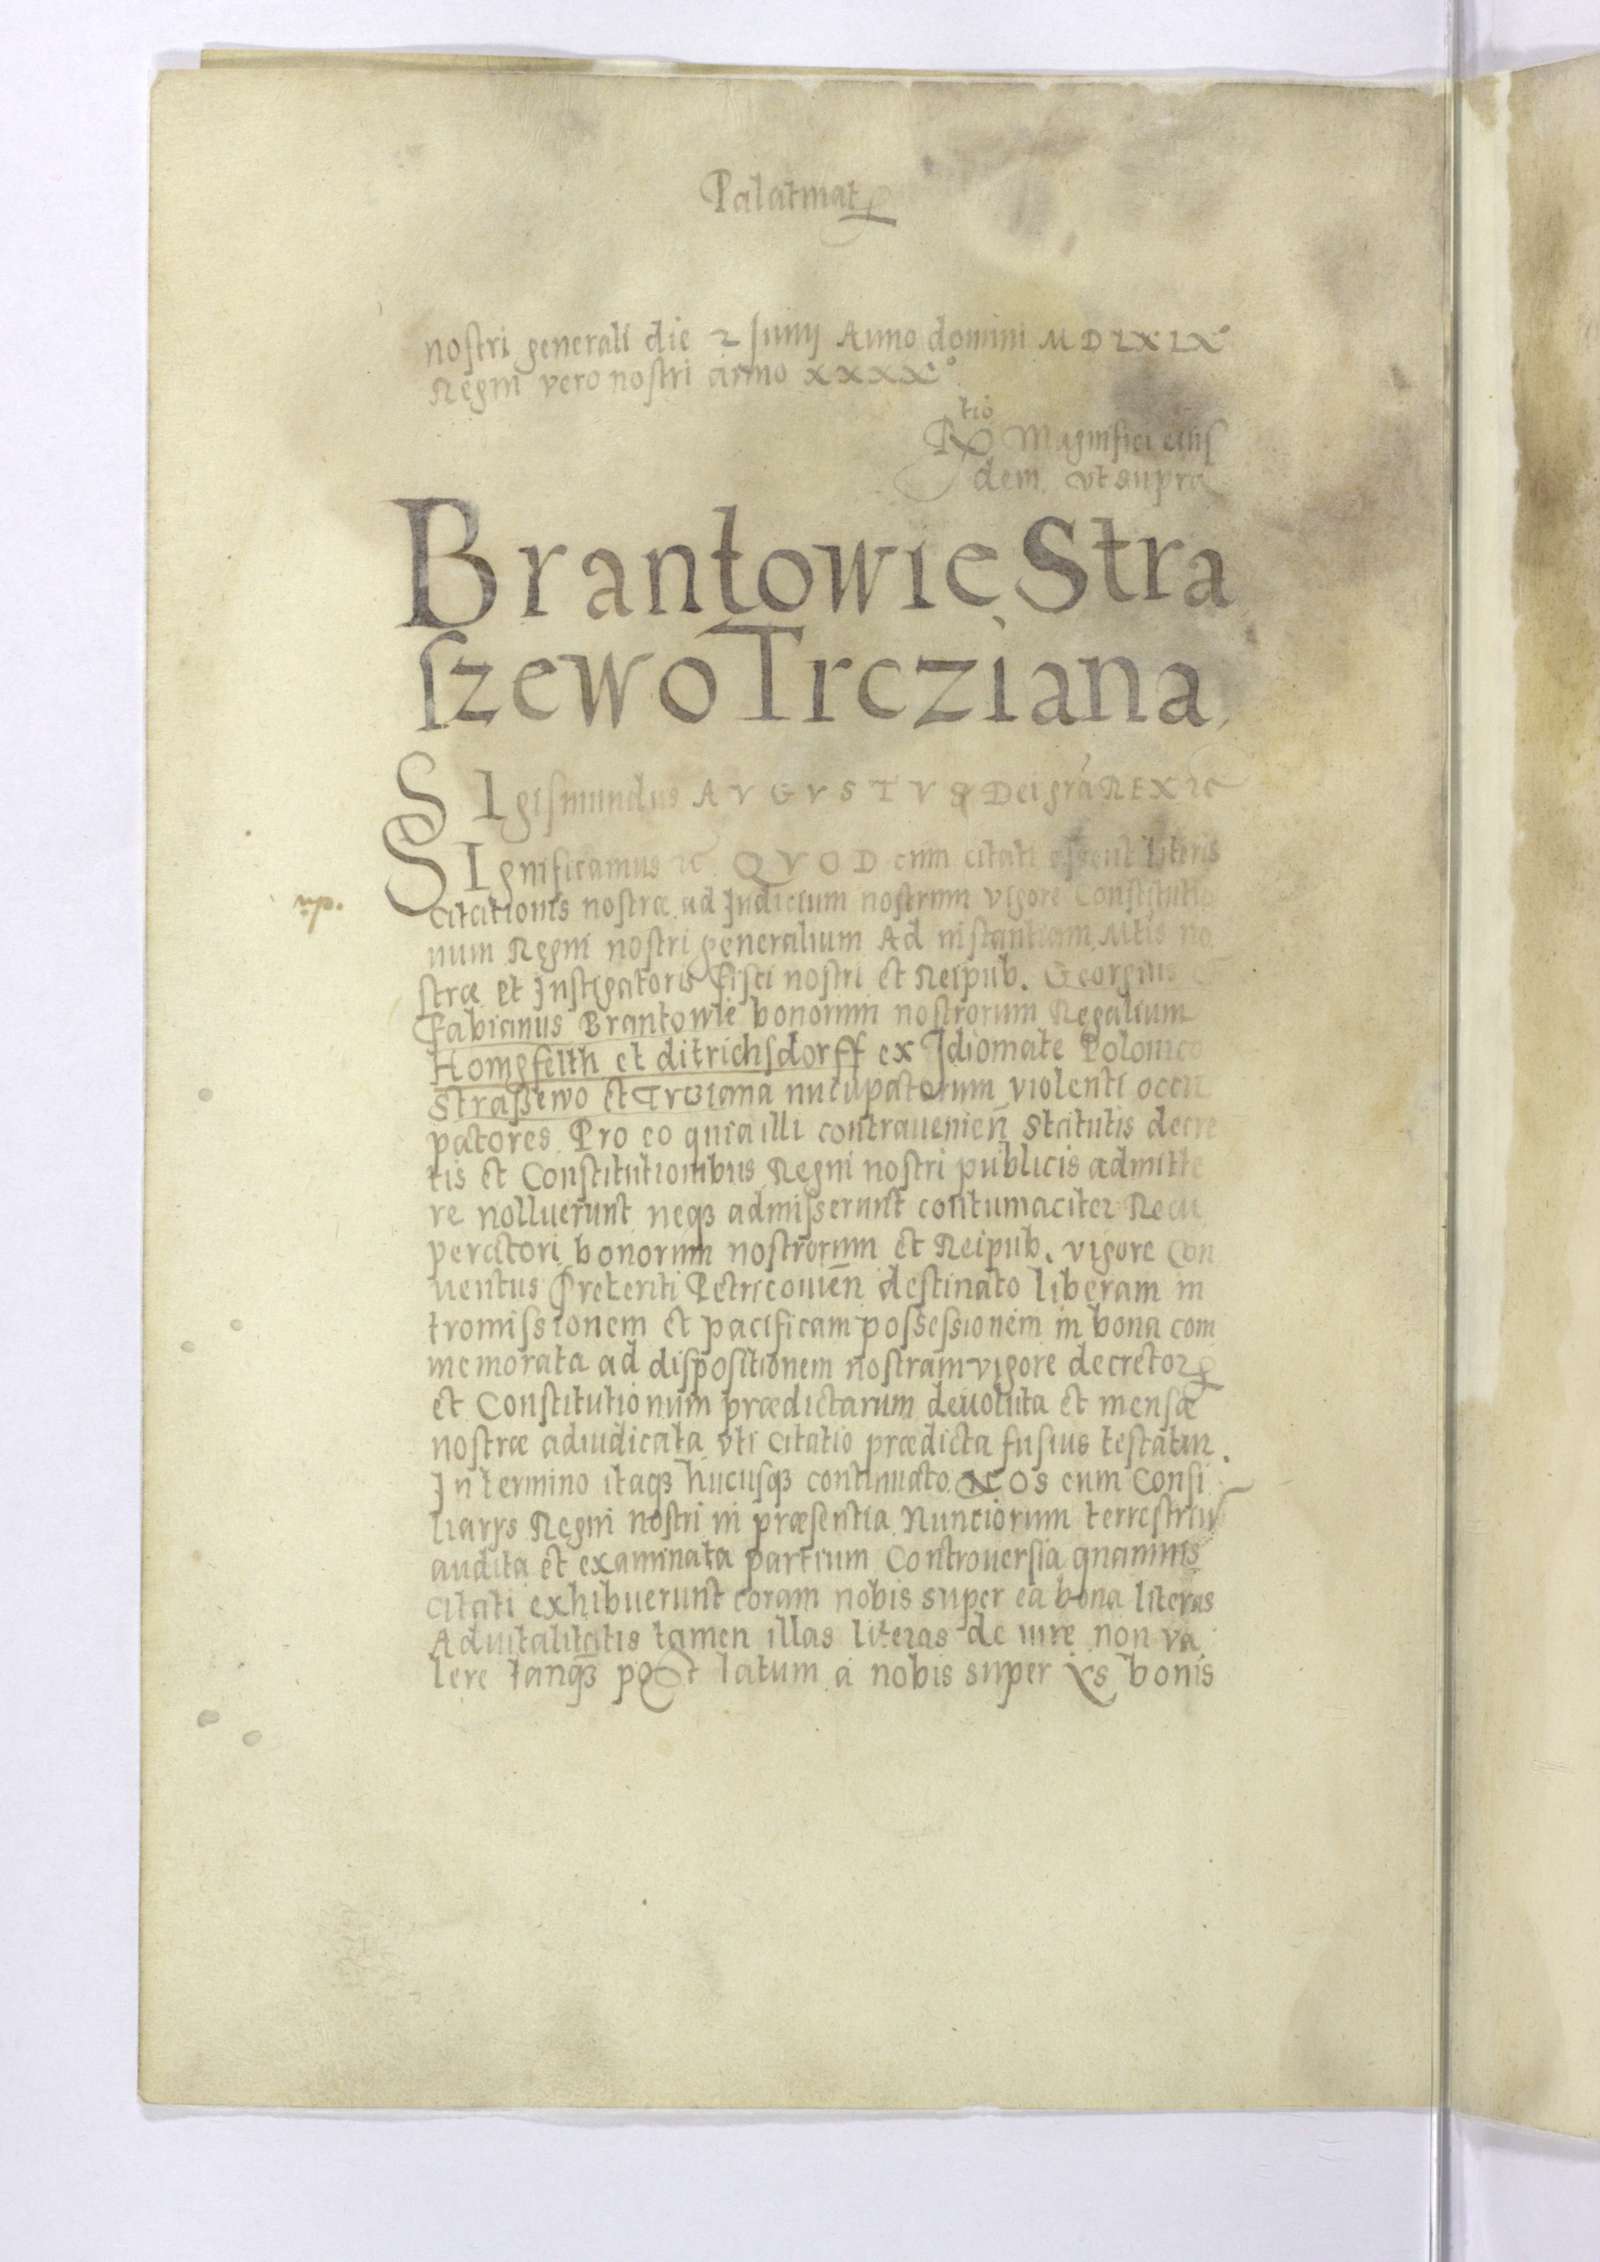 Palatinat
nostri generali die 2 Junij Anno domini MDLXIX°
Regni vero nostri anno XXXX°
Rtio Magnifici eius
dem vt supra
Brantowie Stra
szewo Trcziana
SIgismundus AVGVSTVS Dei gra REX etc
SIgnificamus etc QVOD cum citati essent literis
np.
citationis nostræ ad Judicium nostrum vigore Constitutio
num Regni nostri generalium Ad instantiam Mtis no
stræ et Instigatoris Fisci nostri et Reipub. Georgius et
Fabianus Brantowie bonorum nostrorum Regalium
Honigfelth et ditrichsdorff ex Idiomate Polonico
Strassewo et Trciana nucupatorum violenti occu
patores Pro eo quia illi contrauenien̄ Statutis decre
tis et Constitutionibus Regni nostri publicis admitte
re nolluerunt neqȝ admisserunt contumaciter Recu
peratori bonorum nostrorum et Reipub. vigore Con
uentus Preteriti Petricouien̄ destinato liberam in
tromissionem et pacificam possessionem in bona com
memorata ad dispositionem nostram vigore decretoꝝ
et Constitutionum prædictarum deuoluta et mensæ
nostræ adiudicata vti citatio prædicta fusius testatur.
In termino itaqȝ hucusqȝ continuato NOS cum Consi
liarys Regni nostri in præsentia Nunciorum terrestriu
audita et examinata partium Controuersia quamuis
citati exhibuerunt coram nobis super ea bona literas
Aduitalitatis tamen illas literas de iure non va
lere tanqȝ post latum a nobis super ys bonis